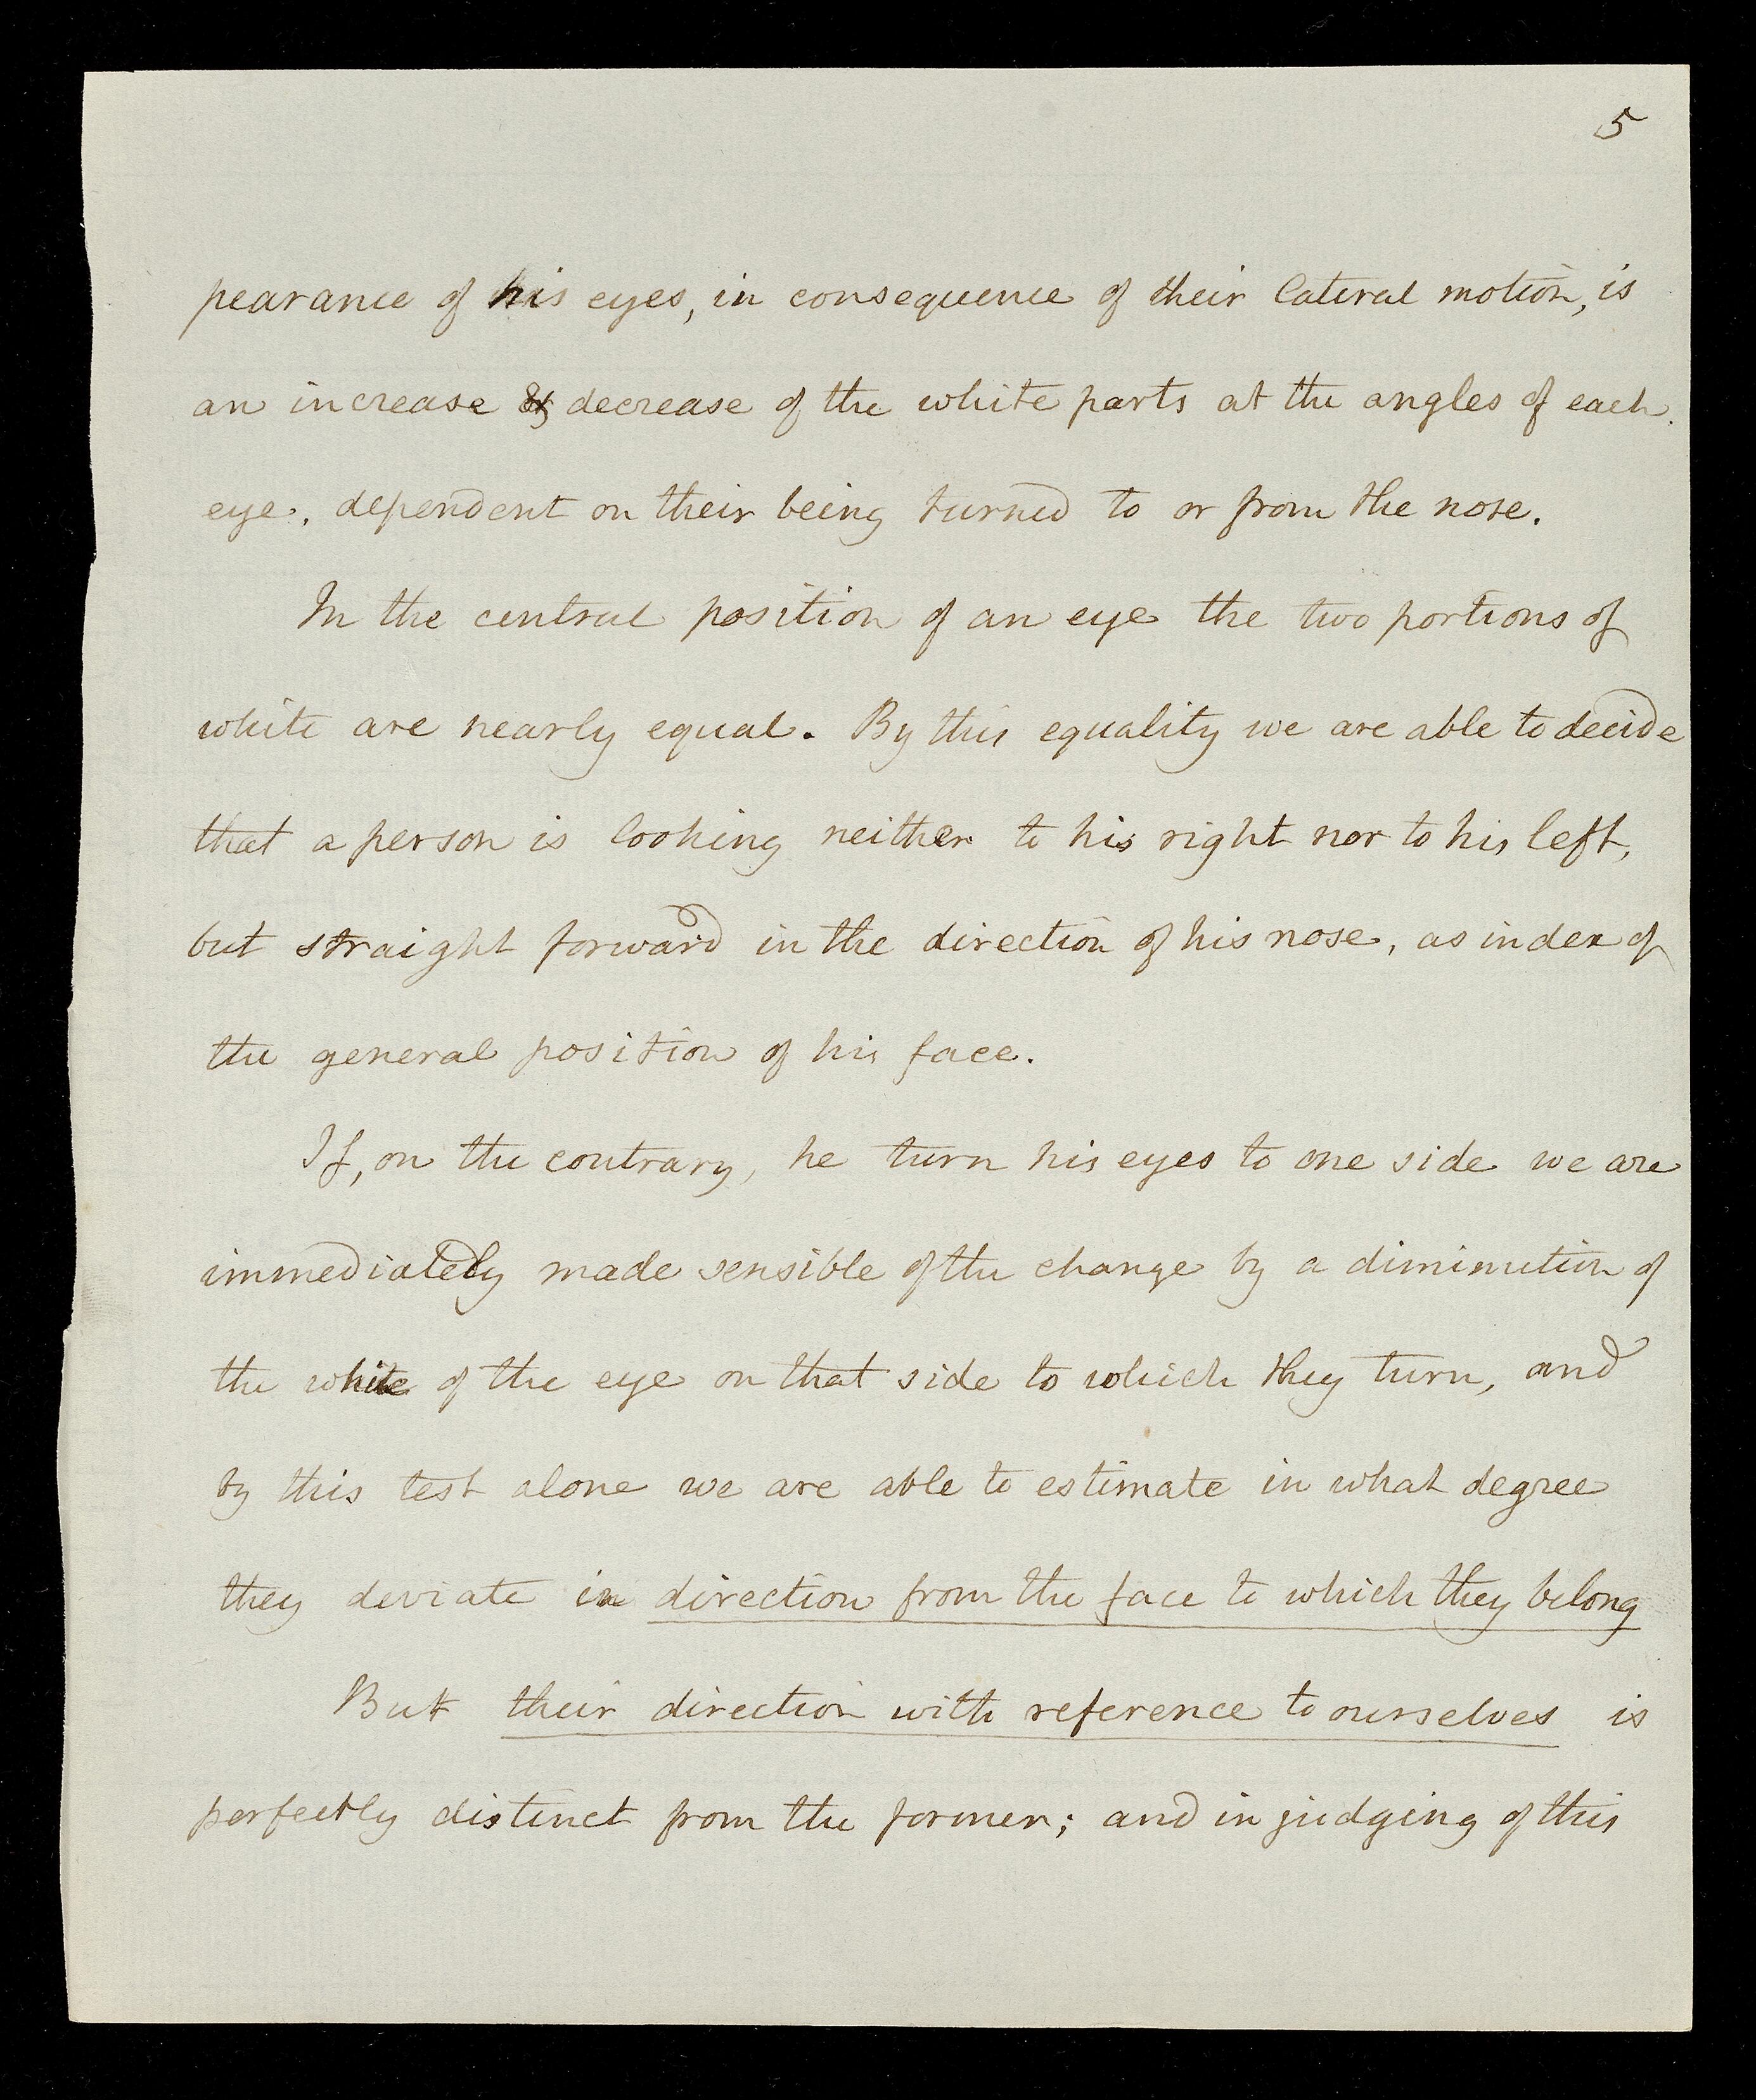 5
pearance of his eyes, in consequence of their lateral motion, is
an increase & decrease of the white parts at the angles of each
eye, dependent on their being turned to or from the nose.
In the central position of an eye the two portions of
white are nearly equal. By this equality we are able to decide
that a person is looking neither to his right nor to his left,
but straight forward in the direction of his nose, as index of
the general position of his face.
If, on the contrary, he turn his eyes to one side we are
immediately made sensible of the change by a diminution of
the white of the eye on that side to which they turn, and
by this test alone we are able to estimate in what degree
they deviate in direction from the face to which they belong
But their direction with reference to ourselves is
perfectly distinct from the former; and in judging of this